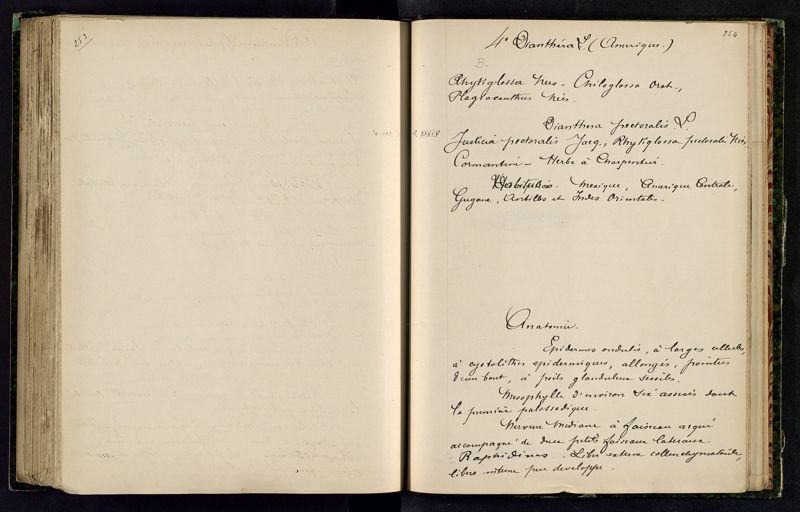 253
254
4° Dianthera L. (Amerique.)
B.
Rhytiglossa Nees. Chiloglossa Orst.,
Plagiacanthus Nees.
Dianthera pectoralis L.
Justicia pectoralis Jacq., Rhytiglossa pectoralis Nees
Carmantine – Herbe à Charpentier.
Habitation. Mexique, Amerique Centrale,
Guyane, Antilles et Indes Orientales.
Anatomie.
Epidermes ondulés, à larges cellules,
à cystolithes epidermiques, allongés, pointus
d'un bout, à poils glanduleux sessiles.
Mesophylle d'environ six assises dont
la première palissadique.
Nervure Mediane à faisceau arqué
accompagné de deux petits faisceaux lateraux.
Raphidines. Liber externe collenchymatoïde,
liber interne peu developpé.